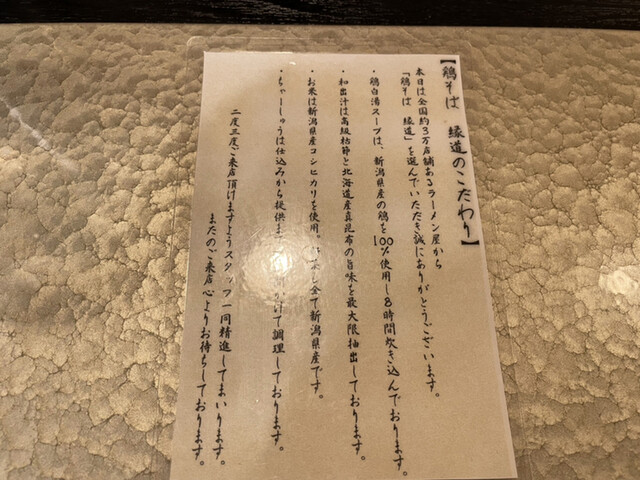 【鶏そば 縁道のこだわり】
本日は全国約3万店舗あるラーメン屋から
「鶏そば 縁道」を選んでいただき誠にありがとうございます。
・鶏白湯スープは、新潟県産の鶏を100%使用し8時間炊き込んでおります。
・和出汁は高級枯節と北海道産真昆布の旨味を最大限抽出しております。
・お米は新潟県産コシヒカリを使用。し全て新潟県産です。
・ちゃーしゅうは仕込みから提供まかけて調理しております。
二度三度ご来店頂けますようスタッフ一同精進してまいります。
またのご来店心よりお待ちしております。